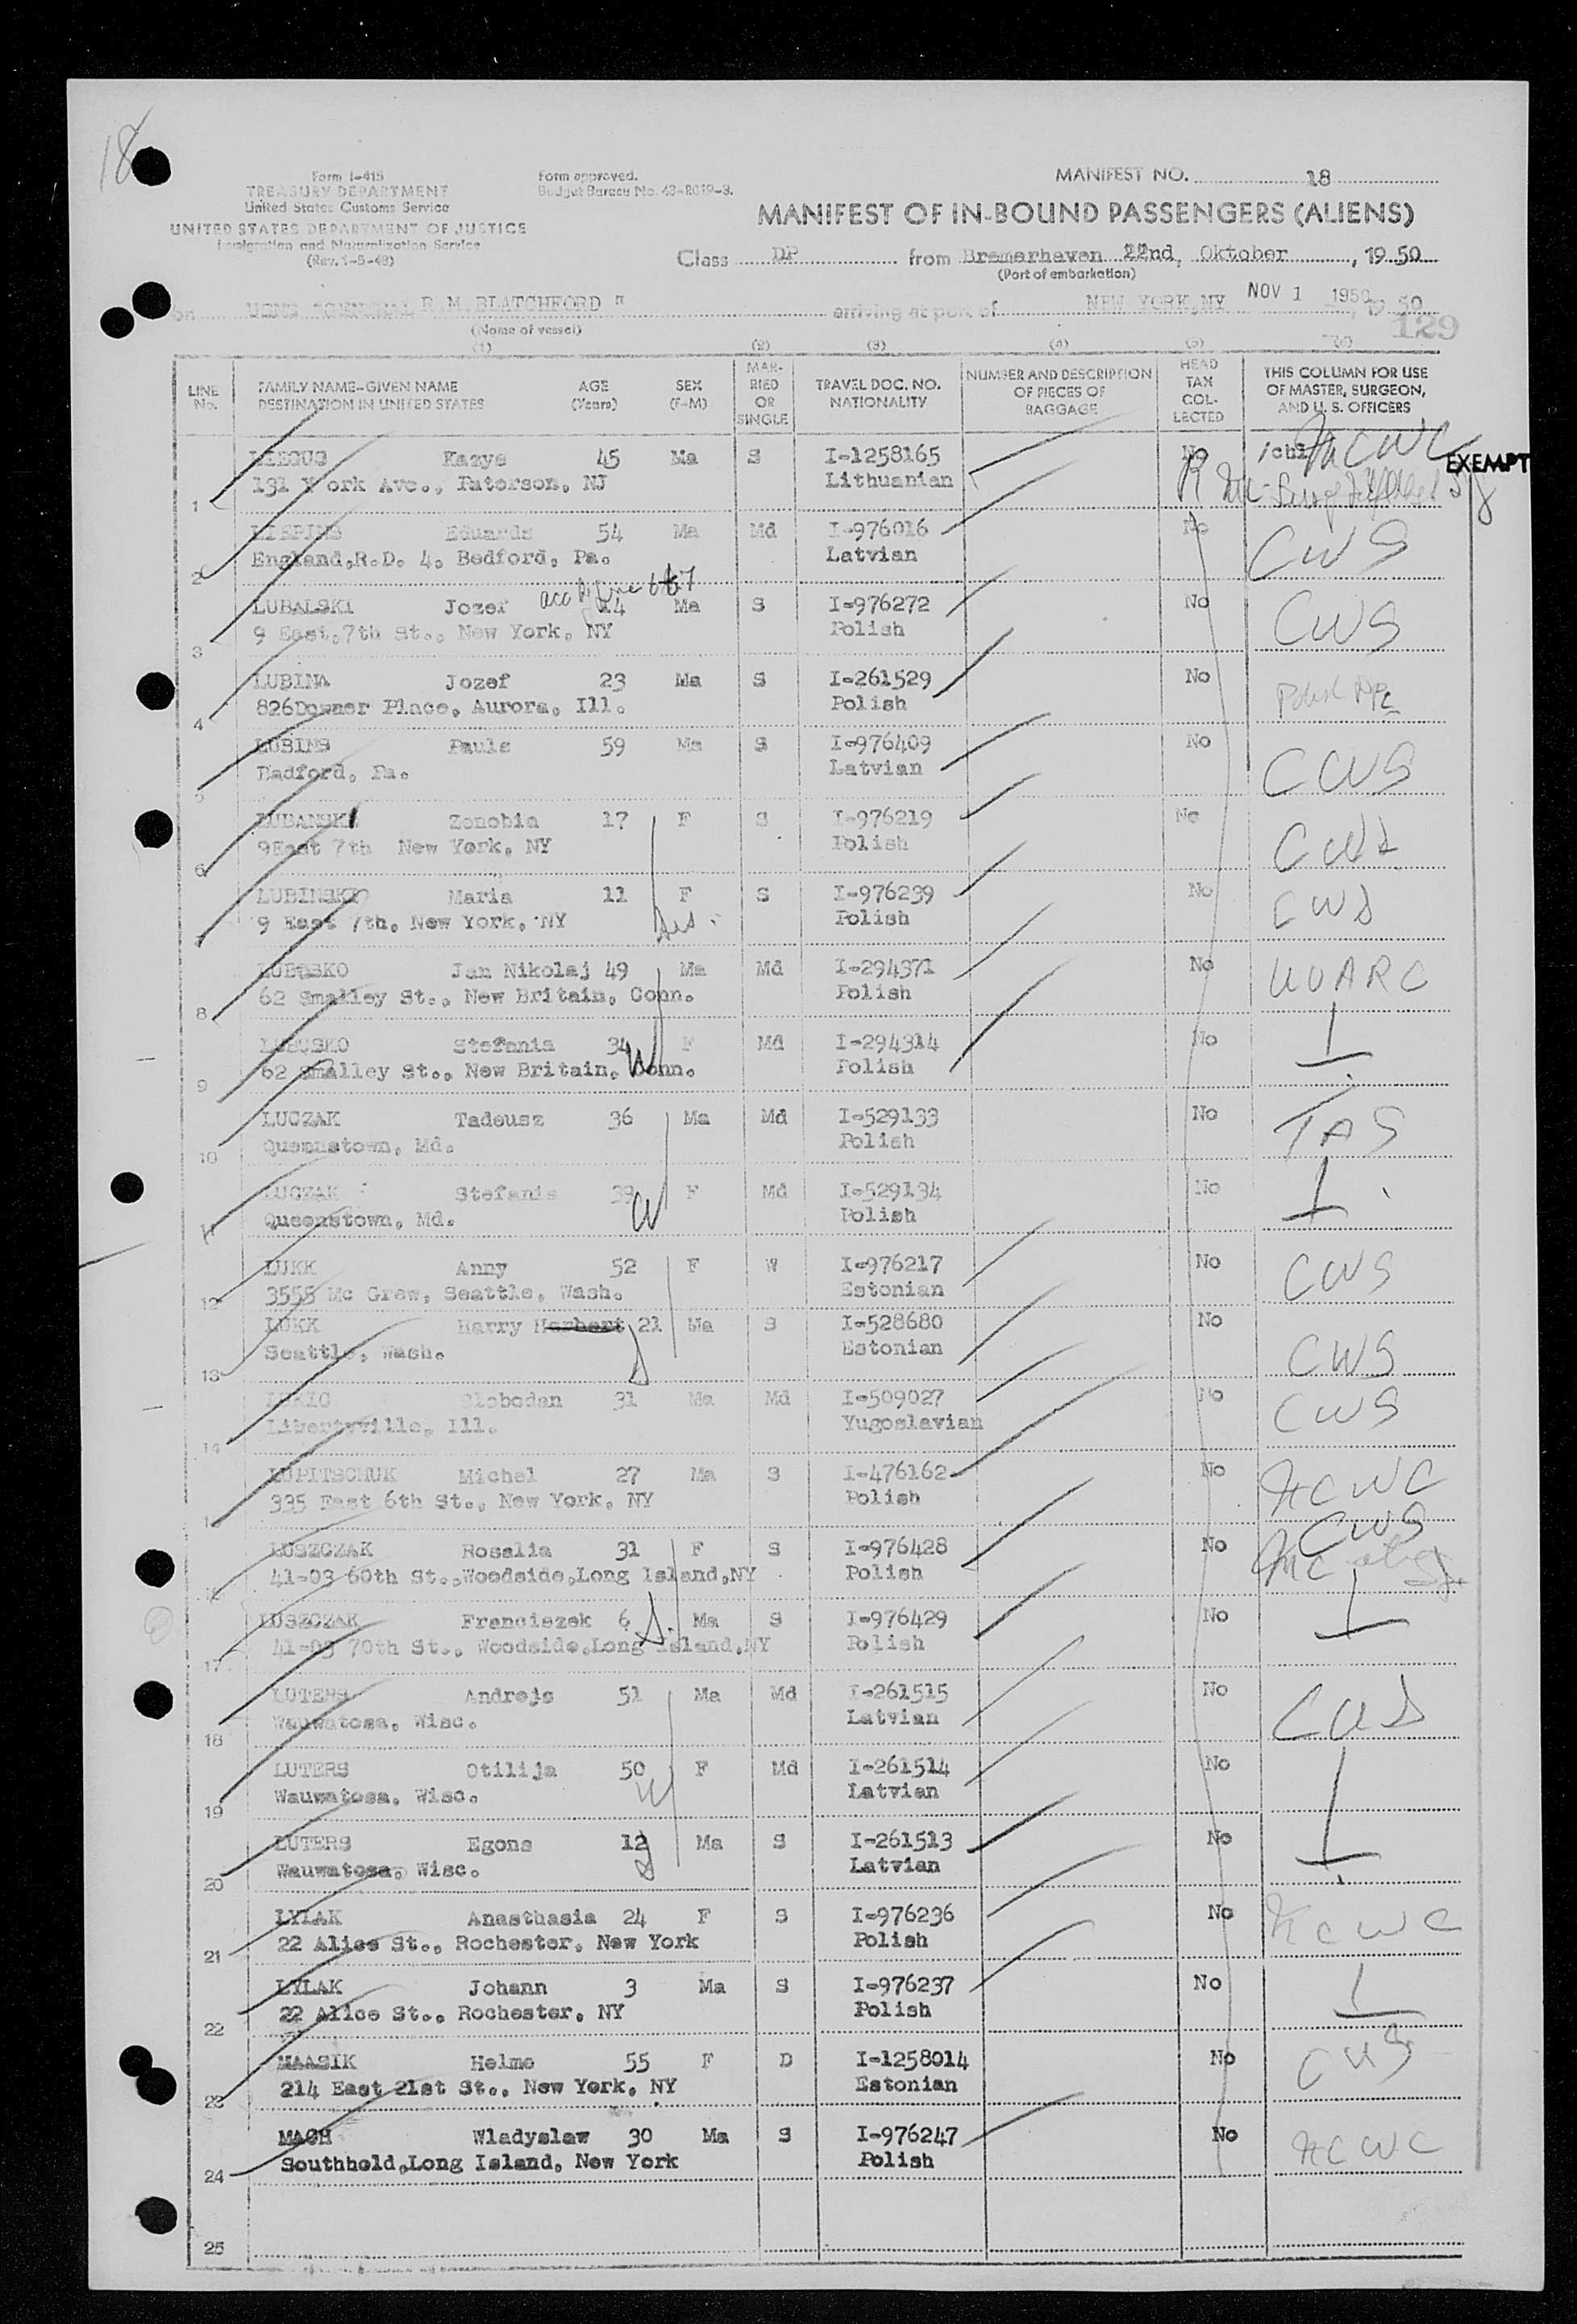 18
Form I-415
TREASURY DEPARTMENT
United States Customs Service
UNITED STATES DEPARTMENT OF JUSTICE
Immigration and Naturalization Service
(Rev. 1-5-48)
Form approved.
Budget Bureau No. 43-R019-3.
MANIFEST NO. 18
MANIFEST OF IN-BOUND PASSENGERS (ALIENS)
Class DP from Bremerhaven 22nd, Oktober, 1950
(Port of embarkation)
on USNS "GENERAL R.M. BLATCHFORD" arriving at port of NEW YORK,NY NOV 1 1950, 1950
(Name of vessel)
129
(1) (2) (3) (4) (5) (6)
LINE No. FAMILY NAME-GIVEN NAME DESTINATION IN UNITED STATES AGE (Years) SEX (F-M) MARRIED OR SINGLE TRAVEL DOC. NO. NATIONALITY NUMBER AND DESCRIPTION OF PIECES OF BAGGAGE HEAD TAX COLLECTED THIS COLUMN FOR USE OF MASTER, SURGEON, AND U. S. OFFICERS
Kazys 45 Ma S I-1258165 No NCWC EXEMPT
1 131 York Ave., Paterson, NJ Lithuanian
LIEPINS Eduards 54 Ma Md I-976016 No CWS
2 England,R.D. 4. Bedford, Pa. Latvian
acc by line 6&7
LUBALSKI Jozef 14 Ma S I-976272 No CWS
3 9 East,7th St., New York, NY Polish
LUBINA Jozef 23 Ma S I-261529 No
4 826Downer Place, Aurora, Ill. Polish
LUBINS Pauls 59 Ma S I-976409 No CWS
5 Badford, Pa. Latvian
LUBANSKI Zenobia 17 F S I-976219 No CWS
6 9East 7th New York, NY Polish
LUBINSKI Maria 11 F S I-976239 No CWS
7 9 East 7th, New York, NY Polish
LUBOSKO Jan Nikolaj 49 Ma Md I-294371 No UUARC
8 62 Smalley St., New Britain, Conn. Polish
LUBOSKO Stefania 34 F Md I-294314 No
9 62 Smalley St., New Britain, Conn. Polish
LUCZAK Tadeusz 36 Ma Md I-529133 No TAS
10 Queenstown, Md. Polish
LUCZAK Stefania 39 F Md I-529134 No
11 Queenstown, Md. Polish
LUKK Anny 52 F W I-976217 No CWS
12 3555 Mc Grew, Seattle, Wash. Estonian
LUKK Harry Herbert 21 Ma S I-528680 No CWS
13 Seattle, Wash. Estonian
Slobodan 31 Ma Md I-509027 No CWS
14 Libertyville, Ill. Yugoslavian
LUPITSCHUK Michel 27 Ma S I-476162 No NCWC
15 335 East 6th St., New York, NY Polish
LUSZCZAK Rosalia 31 F S I-976428 No CWS
16 41-03 60th St.,Woodside,Long Island,NY Polish
LUSZCZAK Franciszek 6 Ma S I-976429 No
17 41-03 70th St., Woodside,Long Island,NY Polish
LUTERS Andrejs 51 Ma Md I-261515 No CWS
18 Wauwatosa, Wisc. Latvian
LUTERS Otilija 50 F Md I-261514 No
19 Wauwatosa, Wisc. Latvian
LUTERS Egons 12 Ma S I-261513 No
20 Wauwatosa, Wisc. Latvian
LYLAK Anasthasia 24 F S I-976236 No NCWC
21 22 Alice St., Rochester, New York Polish
LYLAK Johann 3 Ma S I-976237 No
22 22 Alice St., Rochester, NY Polish
MAASIK Helme 55 F D I-1258014 No CWS
23 214 East 21st St., New York, NY Estonian
MACH Wladyslaw 30 Ma S I-976247 No NCWC
24 Southhold,Long Island, New York Polish
25